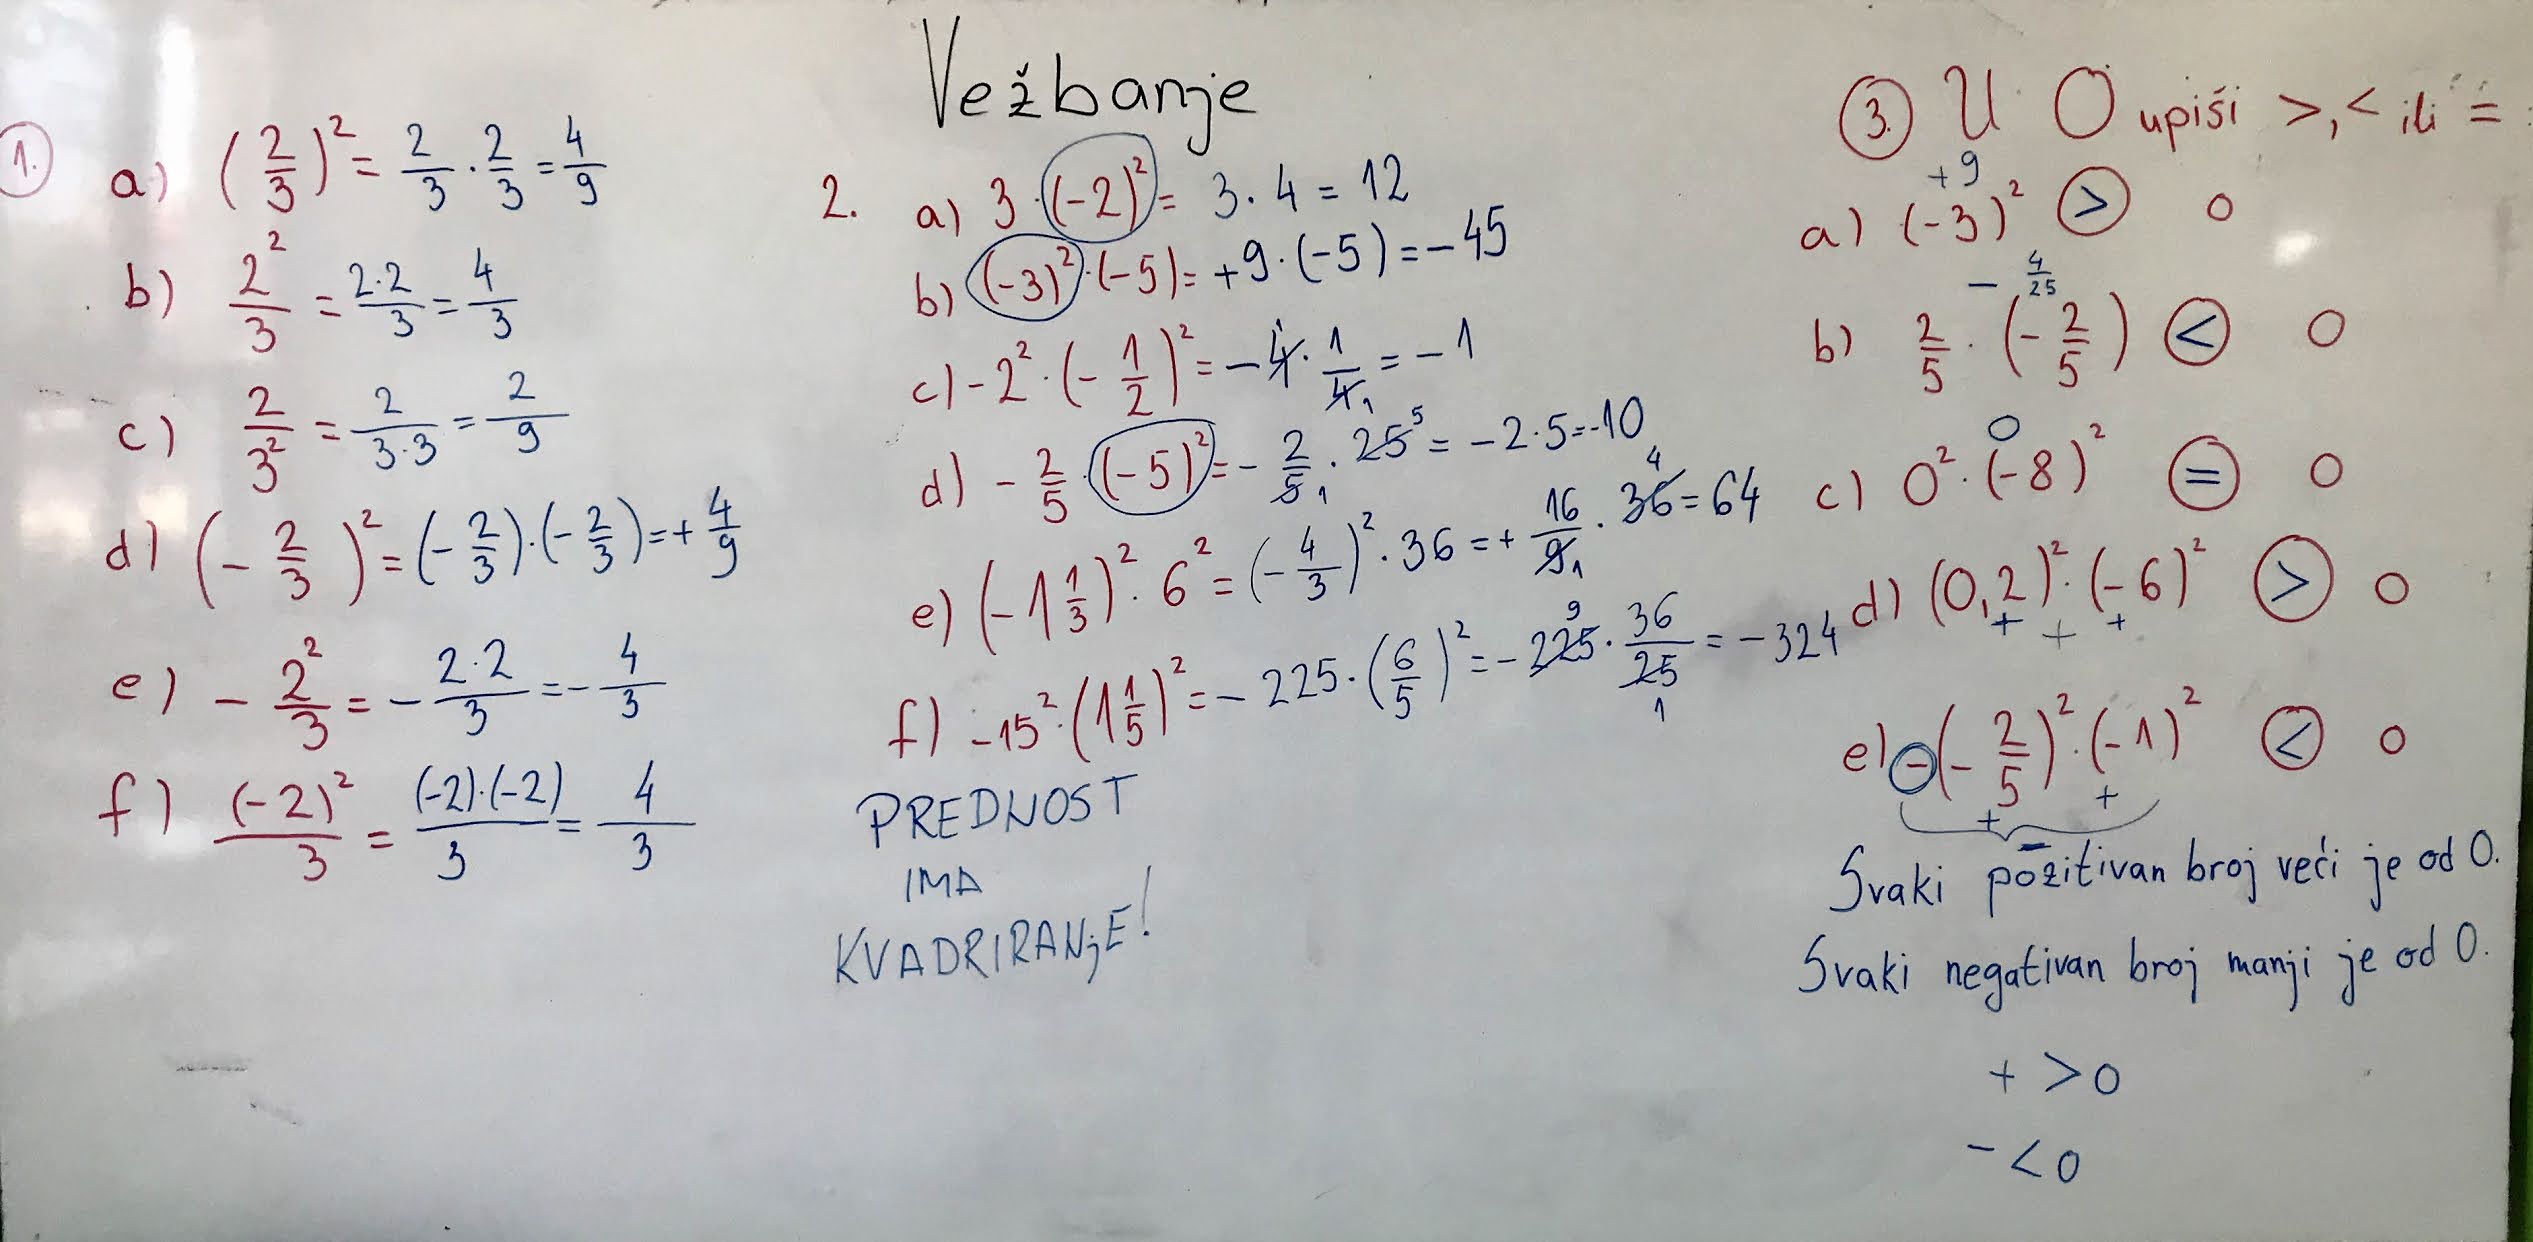 Vežbanje
1.
a) (2/3)² = 2/3 · 2/3 = 4/9
b) 2²/3 = 2·2/3 = 4/3
c) 2/3² = 2/3·3 = 2/9
d) (-2/3)² = (-2/3)·(-2/3) = +4/9
e) -2²/3 = -2·2/3 = -4/3
f) (-2)²/3 = (-2)·(-2)/3 = 4/3
2.
a) 3·(-2)² = 3·4 = 12
b) (-3)²·(-5) = +9·(-5) = -45
c) -2²·(-1/2)² = -4·1/4 = -1
1 1
d) -2/5·(-5)² = -2/5·25 = -2·5=-10
1 5
e) (-1 1/3)²·6² = (-4/3)²·36 = +16/9·36 = 64
1 4
f) -15²·(1 1/5)² = -225·(6/5)² = -225·36/25 = -324
9 1
PREDNOST
IMA
KVADRIRANjE!
3. U O upiši >, < ili =
+9
a) (-3)² > 0
- 4/25
b) 2/5·(-2/5) < 0
0
c) 0²·(-8)² = 0
d) (0,2)²·(-6)² > 0
+ + +
e) -(-2/5)²·(-1)² < 0
+ +
-
Svaki pozitivan broj veći je od 0.
Svaki negativan broj manji je od 0.
+ > 0
- < 0